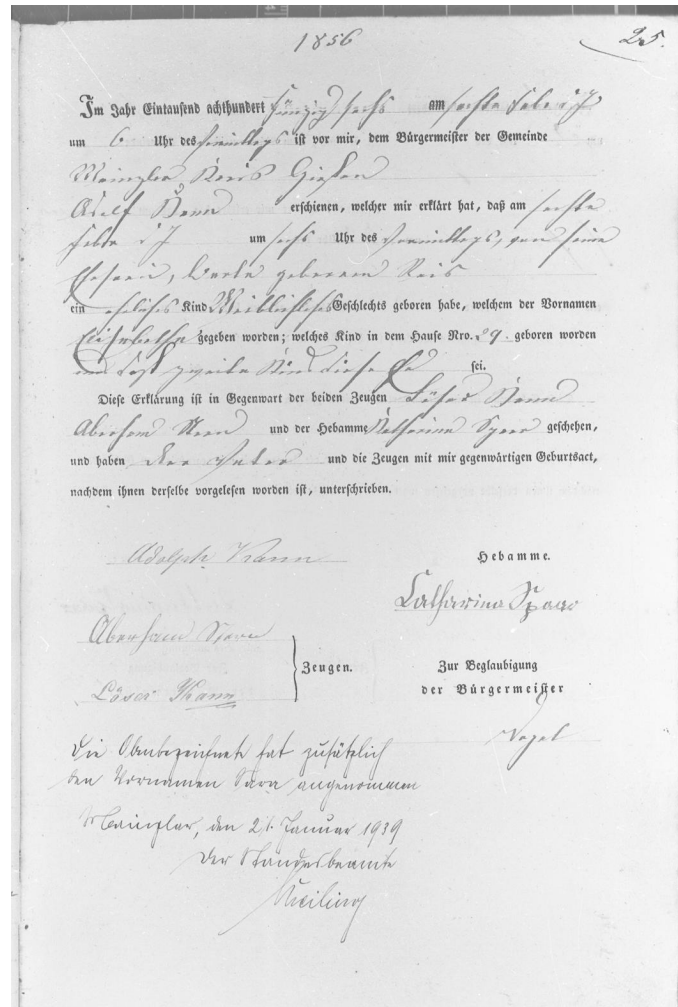 1856
25.
Im Jahr Eintausend achthundert fünfzig sechs am sechste Febr. d J
um 6 Uhr des Vormittags ist vor mir, dem Bürgermeister der Gemeinde
Mainzlar Kreis Giesen
Adolf Kann erschienen, welcher mir erklärt hat, daß am sechste
Febr d J um sechs Uhr des Vormittags, von seine
Ehefrau, geborene Reis
ein eheliches Kind Weiblichen Geschlechts geboren habe, welchem der Vornamen
Elisabetha gegeben worden; welches Kind in dem Hause Nro. 29. geboren worden
und das zweite Kind diese Ehe sei.
Diese Erklärung ist in Gegenwart der beiden Zeugen Löser Kann
Aberham und der Hebamme Katharina Spaar geschehen,
und haben der Vater und die Zeugen mit mir gegenwärtigen Geburtsact,
nachdem ihnen derselbe vorgelesen worden ist, unterschrieben.
Adolph Kann
Hebamme.
Catharina Spaar
Aberham
Löser Kann
Zeugen.
Zur Beglaubigung
der Bürgermeister
Vogel
Die Obenbezeichnete hat zusätzlich
den Vornamen Sara angenommen
Mainzlar, den 21. Januar 1939
Der Standesbeamte